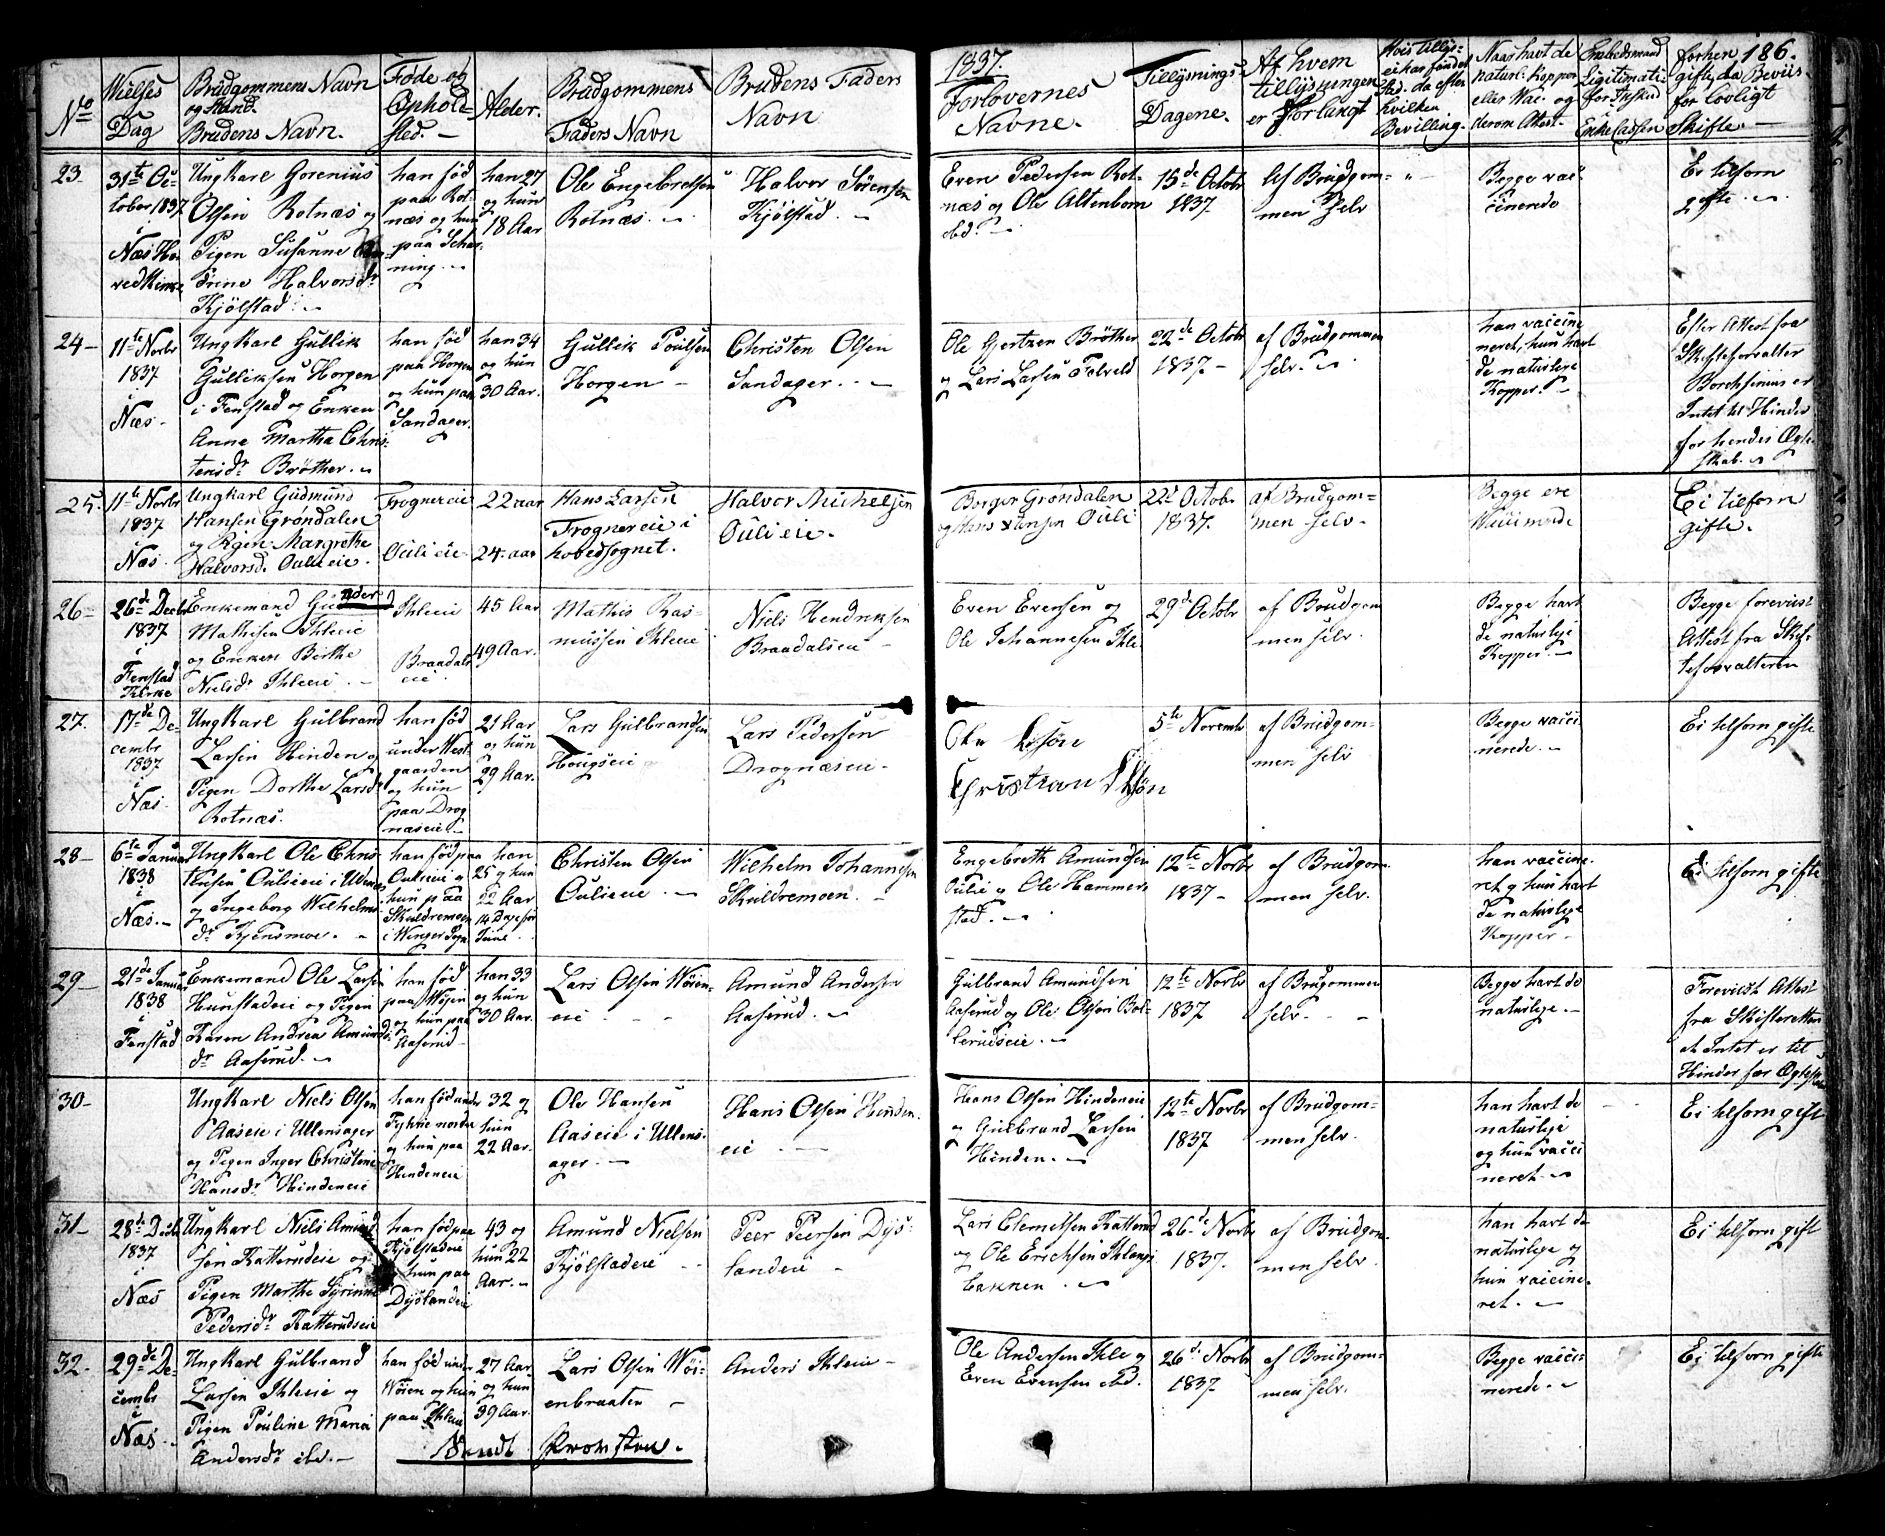 No
Vielses
Dag
Brudgommens Navn
og Stand.
Brudens Navn.
Føde og
Ophold-
sted. -
Alder.
Brudgommens
Faders Navn
Brudens Faders
Navn
1837.
Forlovernes
Navne.
Tillysnings
Dagene.
Af hvem
tillysningen
er forlangt
Hvis tillys-
ei har fundet
sted. da efter
hvilken
Bevilling.
Naar havt de
naturl: Kopper
eller Vac. og
derom Attest.
Embedsmand
Ligitimati
for Indskud
Enkecassen
forhen 186.
gifte, da Beviis
for lovligt
Skifte.
23-
31te Oc-
tober 1837
i
Næs Ho-
vedkirke
Ungkarl Gorenius
Olsen Rotnæs og
Pigen Susanne
Trine Halvorsdr
Kjølstad
han fød
paa Rot-
næs og hun
paa Schar-
ning.
han 27
og hun
18 Aar
Ole Engebretsen
Rotnæs.
Halvor Sørensen
Kjølstad.
Even Pedersen Rot-
næs og Ole Altenborn
ibd.
15de Octobr
1837.
Af Brudgom-
men selv
Begge vac-
cinerede
Ei tilforn
gifte.
24-
11te Novbr
1837
i
Næs.
Ungkarl Gullik
Gulliksen Horgen
i Fenstad og Enken
Anne Martha Chris-
tensdr Brøther.
han fød
paa Horgen
og hun paa
Sandager.
han 34
og hun
30 Aar.
Gullik Poulsen
Horgen -
Christen Olsen
Sandager.
Ole Gjertzen Brøther
og Lars Larsen Felveld
22de Octobr
1837. -
af Brudgommen
selv.
han vaccine
neret, hun havt
de naturlige
Kopper. -
Efter Attest fra
Skifteforvalter
Borchsenius er
Intet til Hinder
for hendes Ægte-
skab.
25.
11te Novbr
1837
i
Næs.
Ungkarl Gudmund
Hansen Grøndalen
og Pigen Margrethe
Halvorsd. Oulieie.
Frognereie
Oulieie
22 aar
24 aar
Hans Larsen
Frognereie i
hovedsognet.
Halvor Michelsen
Oulieie.
Borger Grøndalen
og Hans Jensen Ouli
22d Octobr
1837.
af Brudgom-
men selv.
Begge ere
Ei tilforn
gifte.
26-
26de Decbr
1837
i
Fenstad
Kirke
Enkemand Gunder
Mathisen Ihleeie
og Enken Birthe
Nielsdr Ihleeie
Ihleeie
Braadals
eie.
45 Aar
49 Aar.
Mathis Ras-
mussen Ihleeie
Niels Hendriksen
Braadalseie -
Even Evensen og
Ole Johannesen Ihle.
29d Octobr
af Brudgom
men selv.
Begge havt
de naturlige
Kopper. -
Begge foreviist
Attest fra Skif-
teforvalteren
27.
17de De-
cembr
1837
i
Næs.
Ungkarl Gulbrand
Larsen Hinden og
Pigen Dorthe Larsdr
Rotnæs.
han fød
under West-
gaarden
og hun
paa Drog
næseie.
21 Aar
og hun
29 Aar.
Lars Gulbrandsen
Hougseie
Lars Pedersen
Drognæseie.
Christian
5te Novembr
af Brudgom-
men selv
Begge vacci
nerede. -
Ei tilforn gifte
28-
6te Januar
1838
i
Næs. -
Ungkarl Ole Chris
tensen Oulieie i Ullens
og Ingeborg Wilhelms-
dr Kjensmoe. -
han fød paa
Oulieie og
hun paa
Skuldremoen
i Winger Sogn
han
25 og hun
22 Aar
14 Dage før
June
Christen Olsen
Oulieie. -
Wilhelm Johannesen
Skuldremoen. -
Engebreth Amundsen
Oulie og Ole Hammer-
stad. -
12te Novbr
1837 -
af Brudgom
men selv.
han vaccine-
ret og hun havt
de naturlige
Kopper. -
Ei tilforn gifte
29-
21de Januar
1838
i
Fenstad
Enkemand Ole Larsen
Hunstadeie og Pigen
Karen Andrea Amunds-
dr Aaserud. -
han fød
paa Wøjen
og hun paa
Aaserud-
han 33
og hun
30 Aar.
Lars Olsen Wøien-
eie
Amund Andersen
Aaserud. -
Gulbrand Amundsen
Aaserud og Ole Olsen Bol-
lerudseie. -
12te Novbr
1837
af Brugommen
selv.
Begge havt de
naturlige. -
Foreviist Attest
fra Skifteretten
at Intet er til
Hinder for Ægtesk
30-
Ungkarl Niels Olsen
Aaseie i Ullensager
og Pigen Inger Christine
Hansdr Hindeneie
han fød under
Fyhne nordre
og hun paa
Hindeneie
32 og
hun
22 Aar.
Ole Hansen
Aaseie i Ullens-
ager. -
Hans Olsen Hinden-
eie -
Hans Olsen Hindeneie
og Gulbrand Larsen
Hinden. -
12te Novbr
1837
af Brudgom-
men selv.
han havt de
naturlige
og hun vacci
neret. -
Ei tilforn gift
31-
28de Decbr
1837
i
Næs
Ungkarl Niels Amund
sen Ratterudeie og
Pigen Marthe Syrinne
Pedersdr Ratterudseie
han fød paa
Kjølstadeie
og hun paa
Dyslandeie
43 og
hun 22
Aar. -
Amund Nielsen
Kjølstadeie
Peer Peersen Dys-
landeie -
Lars Clemetsen Ratterud
og Ole Erichsen Ihlangs
bakken. -
26d Novbr
1837.
af Brudgom-
men selv.
han havt de
naturlige og
hun vaccine-
ret. -
Ei tilforn gift
32-
29de De-
cembr
i
Næs.
Ungkarl Gulbrand
Larsen Ihleeie og
Pigen Pouline Maria
Andersdr ibd. -
han fød under
Wøien og hun
paa Ihleeie
27 Aar
og hun
39 Aar.
Lars Olsen Wøi-
enbraaten -
Anders Ihleeie -
Ole Andersen Ihle og
Even Evensen ibd.
26d Novbr
1837
af Brudgom-
men selv.
Begge vacci-
nerede. -
Ei tilforn gifte